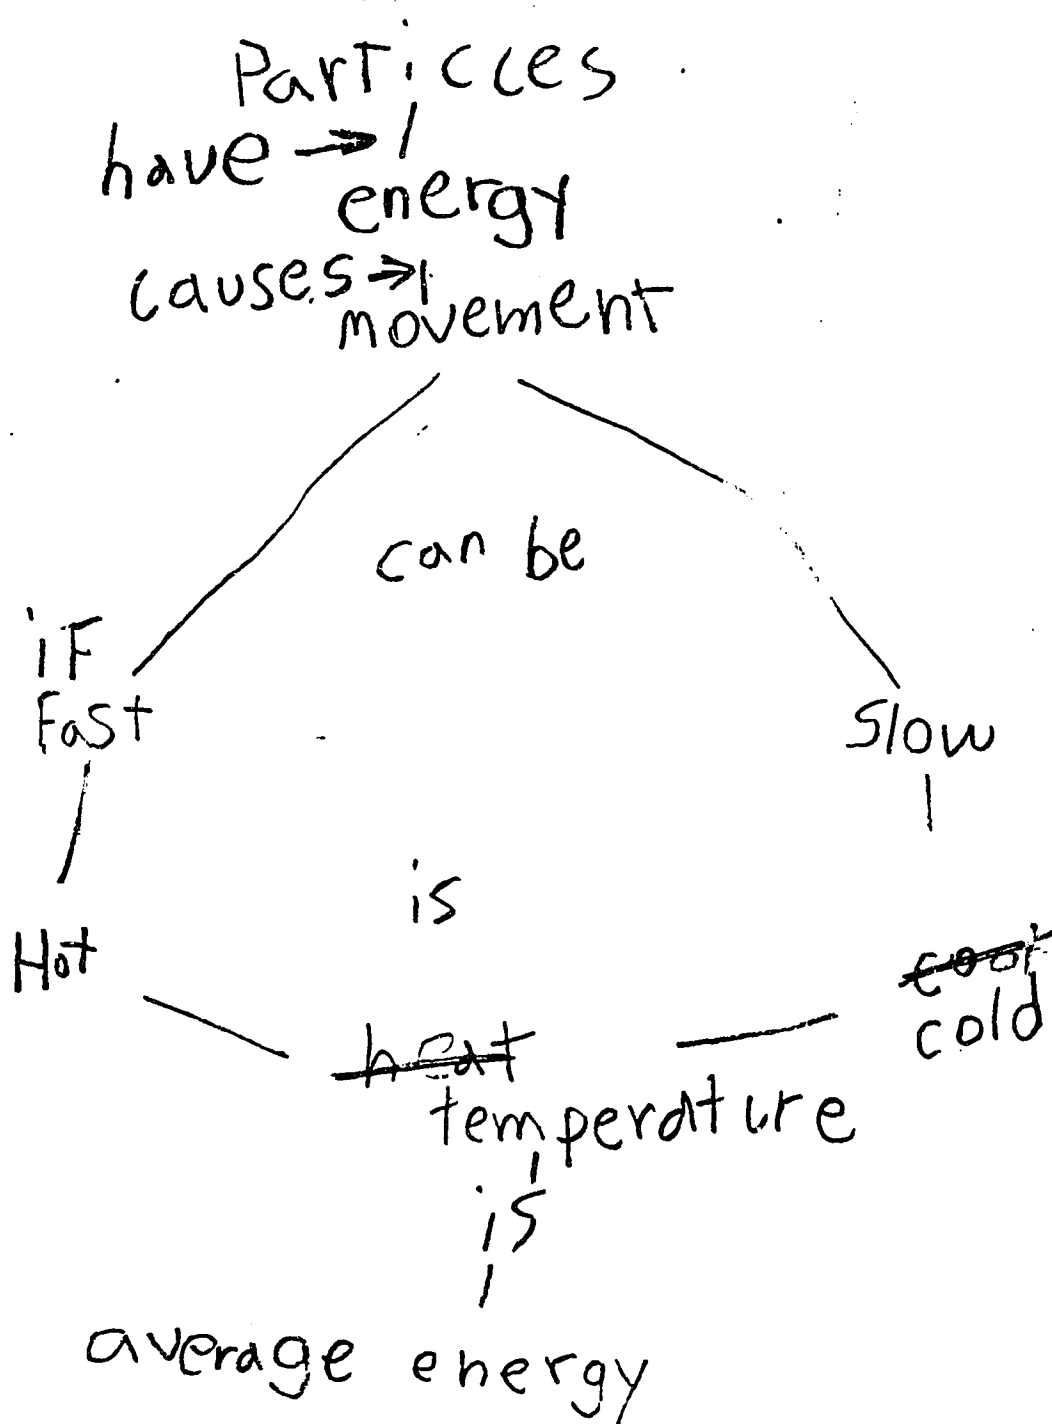 Particles
have
energy
causes
movement
can be
if
Fast
Slow
is
Hot
cool
cold
heat
temperature
is
average energy